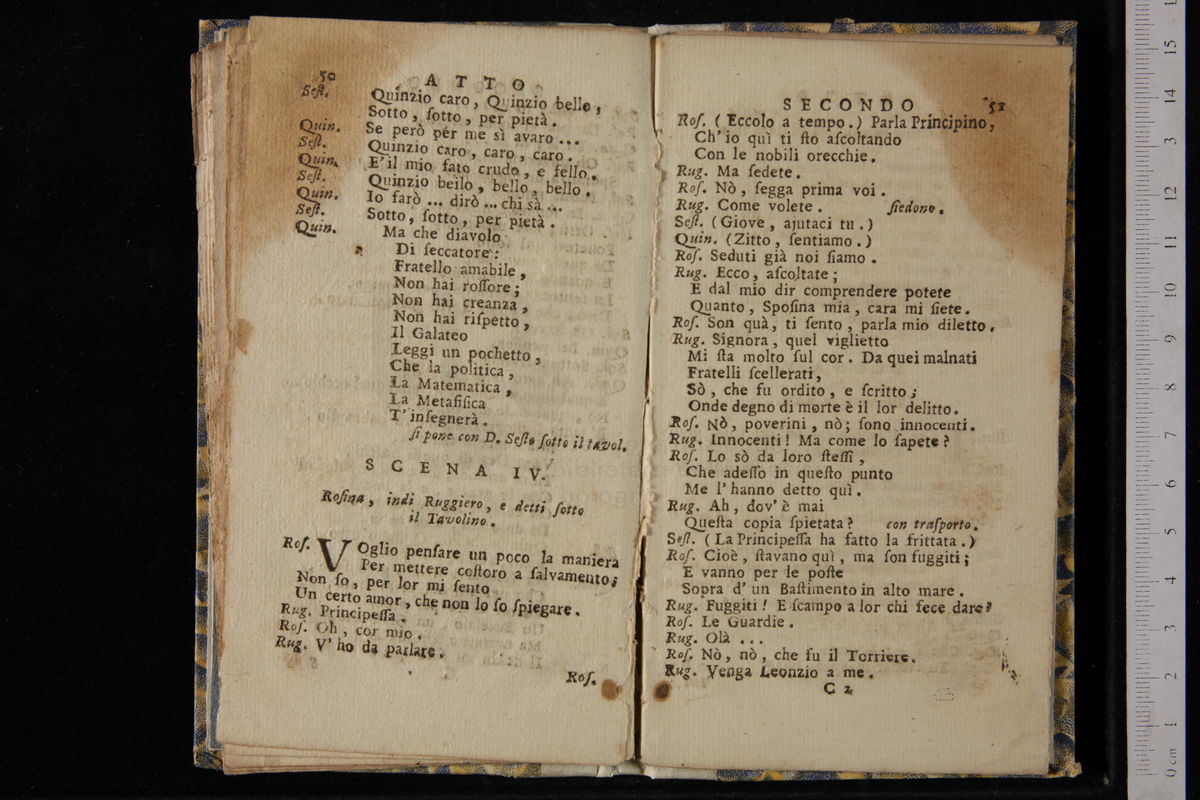 50
ATTO
Seſt. Quinzio caro, Quinzio bello,
Sotto, ſotto, per pietà.
Quin. Se però per me sì avaro ...
Seſt. Quinzio caro, caro, caro.
Quin. E'il mio fato crudo, e fello.
Seſt. Quinzio beilo, bello, bello.
Quin. Io farò ... dirò ... chi sà ...
Seſt. Sotto, ſotto, per pietà.
Quin. Ma che diavolo
Di ſeccatore:
Fratello amabile,
Non hai roſſore;
Non hai creanza,
Non hai riſpetto,
Il Galateo
Leggi un pochetto,
Che la politica,
La Matematica,
La Metafiſica
T'inſegnerà.
ſi pone con D. Seſto ſotto il tavol.
SCENA IV.
Roſina, indi Ruggiero, e detti ſotto
il Tavolino.
Roſ. VOglio penſare un poco la maniera
Per mettere coſtoro a ſalvamento;
Non ſo, per lor mi ſento
Un certo amor, che non lo ſo ſpiegare.
Rug. Principeſſa.
Roſ. Oh, cor mio.
Rug. V'ho da parlare.
Roſ.
SECONDO
51
Roſ. (Eccolo a tempo.) Parla Principino,
Ch'io quì ti ſto aſcoltando
Con le nobili orecchie.
Rug. Ma ſedete.
Roſ. Nò, ſegga prima voi.
Rug. Come volete. ſiedono.
Seſt. (Giove, ajutaci tu.)
Quin. (Zitto, ſentiamo.)
Roſ. Seduti già noi ſiamo.
Rug. Ecco, aſcoltate;
E dal mio dir comprendere potete
Quanto, Spoſina mia, cara mi ſiete.
Roſ. Son quà, ti ſento, parla mio diletto.
Rug. Signora, quel viglietto
Mi ſta molto ſul cor. Da quei malnati
Fratelli ſcellerati,
Sò, che fu ordito, e ſcritto;
Onde degno di morte è il lor delitto.
Roſ. Nò, poverini, nò; ſono innocenti.
Rug. Innocenti! Ma come lo ſapete?
Roſ. Lo sò da loro ſteſſi,
Che adeſſo in queſto punto
Me l'hanno detto quì.
Rug. Ah, dov'è mai
Queſta copia ſpietata? con traſporto.
Seſt. (La Principeſſa ha fatto la frittata.)
Roſ. Cioè, ſtavano quì, ma ſon fuggiti;
E vanno per le poſte
Sopra d'un Baſtimento in alto mare.
Rug. Fuggiti! E ſcampo a lor chi fece dare?
Roſ. Le Guardie.
Rug. Olà ...
Roſ. Nò, nò, che fu il Torriere.
Rug. Venga Leonzio a me.
C 2